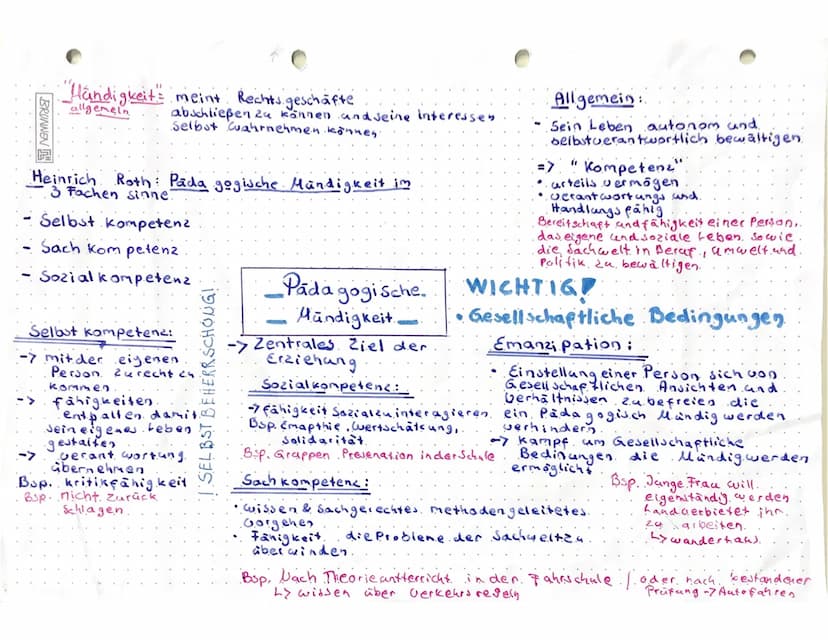 "Mündigkeit": meint Rechtsgeschäfte
allgemein abschließen zu können und seine Interessen
selbst wahrnehmen können
BRUNNEN
Heinrich Roth: Pädagogische Mündigkeit im
3 Fachen sinne
- Selbst kompetenz
- Sach kompetenz
- Sozialkompetenz
Allgemein:
- Sein Leben autonom und
selbstverantwortlich bewältigen
=> "Kompetenz"
• urteilsvermögen
• verantwortungs und
Handlungsfähig
Bereitschaft und fähigkeit einer Person,
das eigene und soziale Leben sowie
die Sachwelt in Beruf, umwelt und
Politik zu bewältigen
Pädagogische
Mündigkeit
-> Zentrales Ziel der
Erziehung
WICHTIG!
• Gesellschaftliche Bedingungen
Selbst kompetenz:
-> mit der eigenen
Person zurecht zu
kommen
-> fähigkeiten
entfallen damit
sein eigenes Leben
gestalten
-> verantwortung
übernehmen
Bsp. kritikfähigkeit
Bsp. nicht zurück
schlagen
! SELBSTBEHERRSCHUNG!
Sozialkompetenz:
-> fähigkeit Sozial zu interagieren
Bsp. Emapthie, wertschätzung,
solidarität
Bsp. Gruppen Präsenation in der Schule
Sachkompetenz:
• wissen & Sachgerechtes methodengeleitetes
vorgehen
• Fähigkeit die Probleme der Sachwelt zu
überwinden
Bsp. Nach Theorieuntterricht in der Fahrschule / oder nach bestandener
↳ wissen über verkehrsregeln Prüfung -> Autofahren
Emanzipation:
• Einstellung einer Person sich von
Gesellschaftlichen Ansichten und
verhältnissen zu befreien die
ein Pädagogisch Mündig werden
verhindern
-> kampf um Gesellschaftliche
Bedinungen die Mündigwerden
ermöglicht
Bsp. Junge Frau will
eigenständig werden
Land verbietet ihr
zu arbeiten
↳ wandert aus